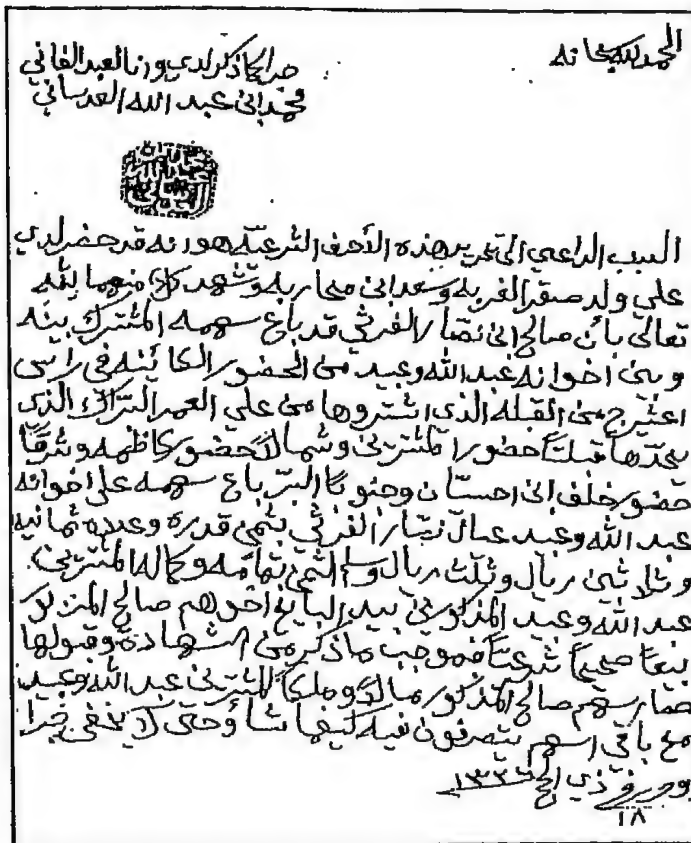 الحمد لله سبحانه
جرا كما ذكر لدي وانا العبد الفاني
محمد ابن عبد الله العدساني
السبب الداعي الى تحرير هذه الأحرف الشرعيّة هو انه قد حضر لدي
علي ولد صقر الغربه وسعد ابن محاربه وشهد كلا منهما بالله
تعالى بأن صالح ابن نصار القريشي قد باع سهمه المشترك بينه
وبين اخوانه عبد الله وعبيد من الحضور الكائينه في راسي
اعشيرج من القبله الذي اشتروها من علي العمر التراك الذي
يحدّها قبلتاً حضور المشترين وشمالاً حضور كاظمه وشرقاً
حضور خلف ابن احسان وجنوبًا البر باع سهمه على اخوانه
عبد الله وعبيد عيال نصار القريشي بثمن قدره وعدده ثمانيه
وثلاثين ريال وثلث ريال وسلم الثمن بتمامه وكماله المشترين
عبد الله وعبيد المذكورين بيد البايع اخوهم صالح المذكور
بيعاً صحيحاً شرعيّاً فبموجب ما ذكر من الشهادة وقبولها
صار سهم صالح المذكور مالاً وملكاً للمشترين عبد الله وعبيد
مع باقي اسهم يتصرفون فيه كيفما شاؤ وحتى لا يخفى جرا
وحرر في ذي الحج ١٣٣٦
١٨